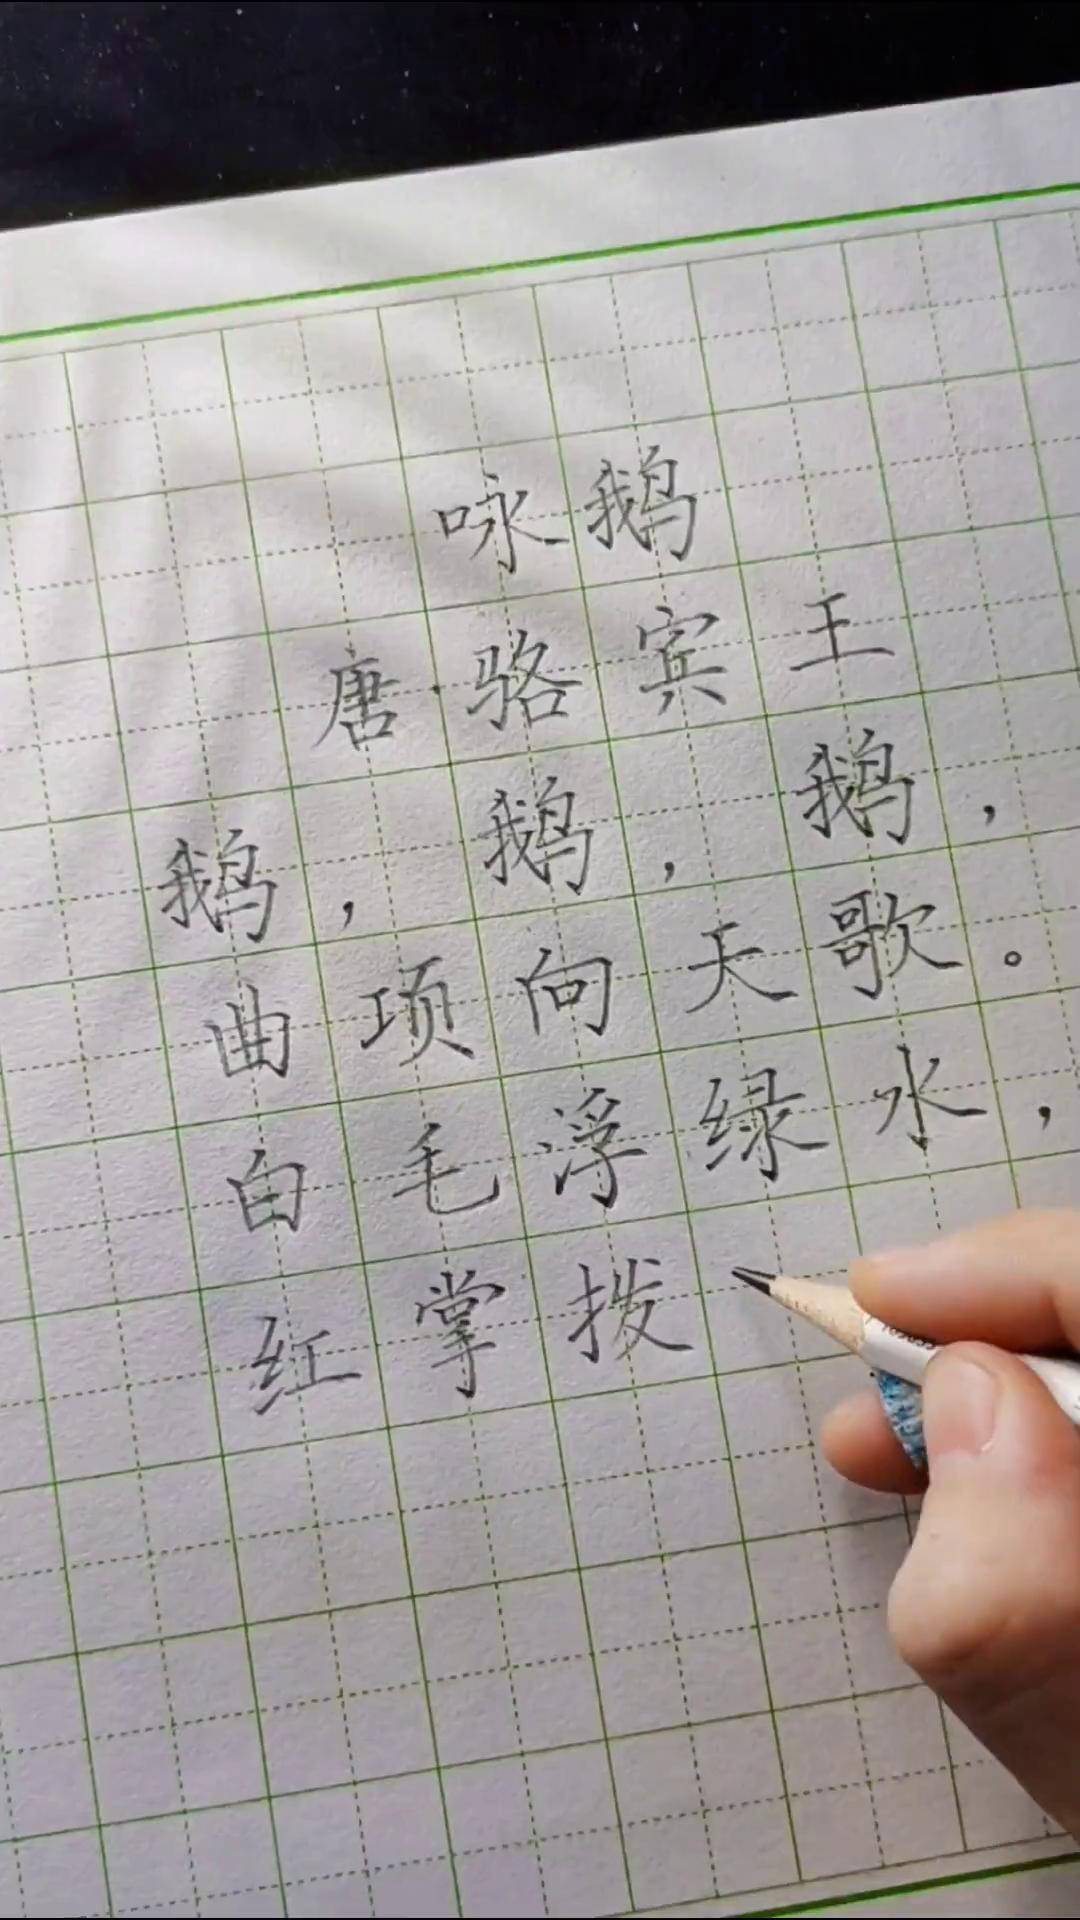 咏鹅
唐·骆宾王
鹅，鹅，鹅，
曲项向天歌。
白毛浮绿水，
红掌拨